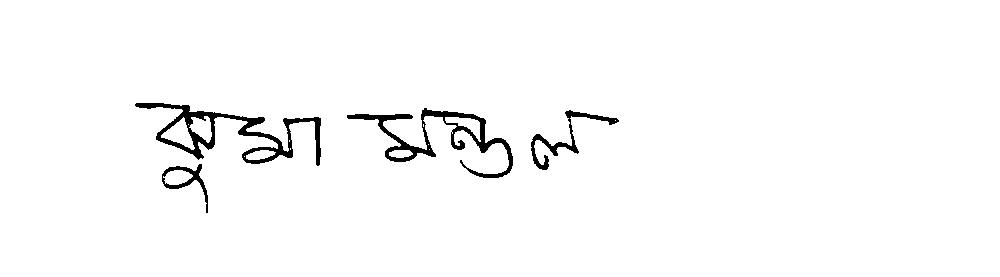 কুমা মন্ডল